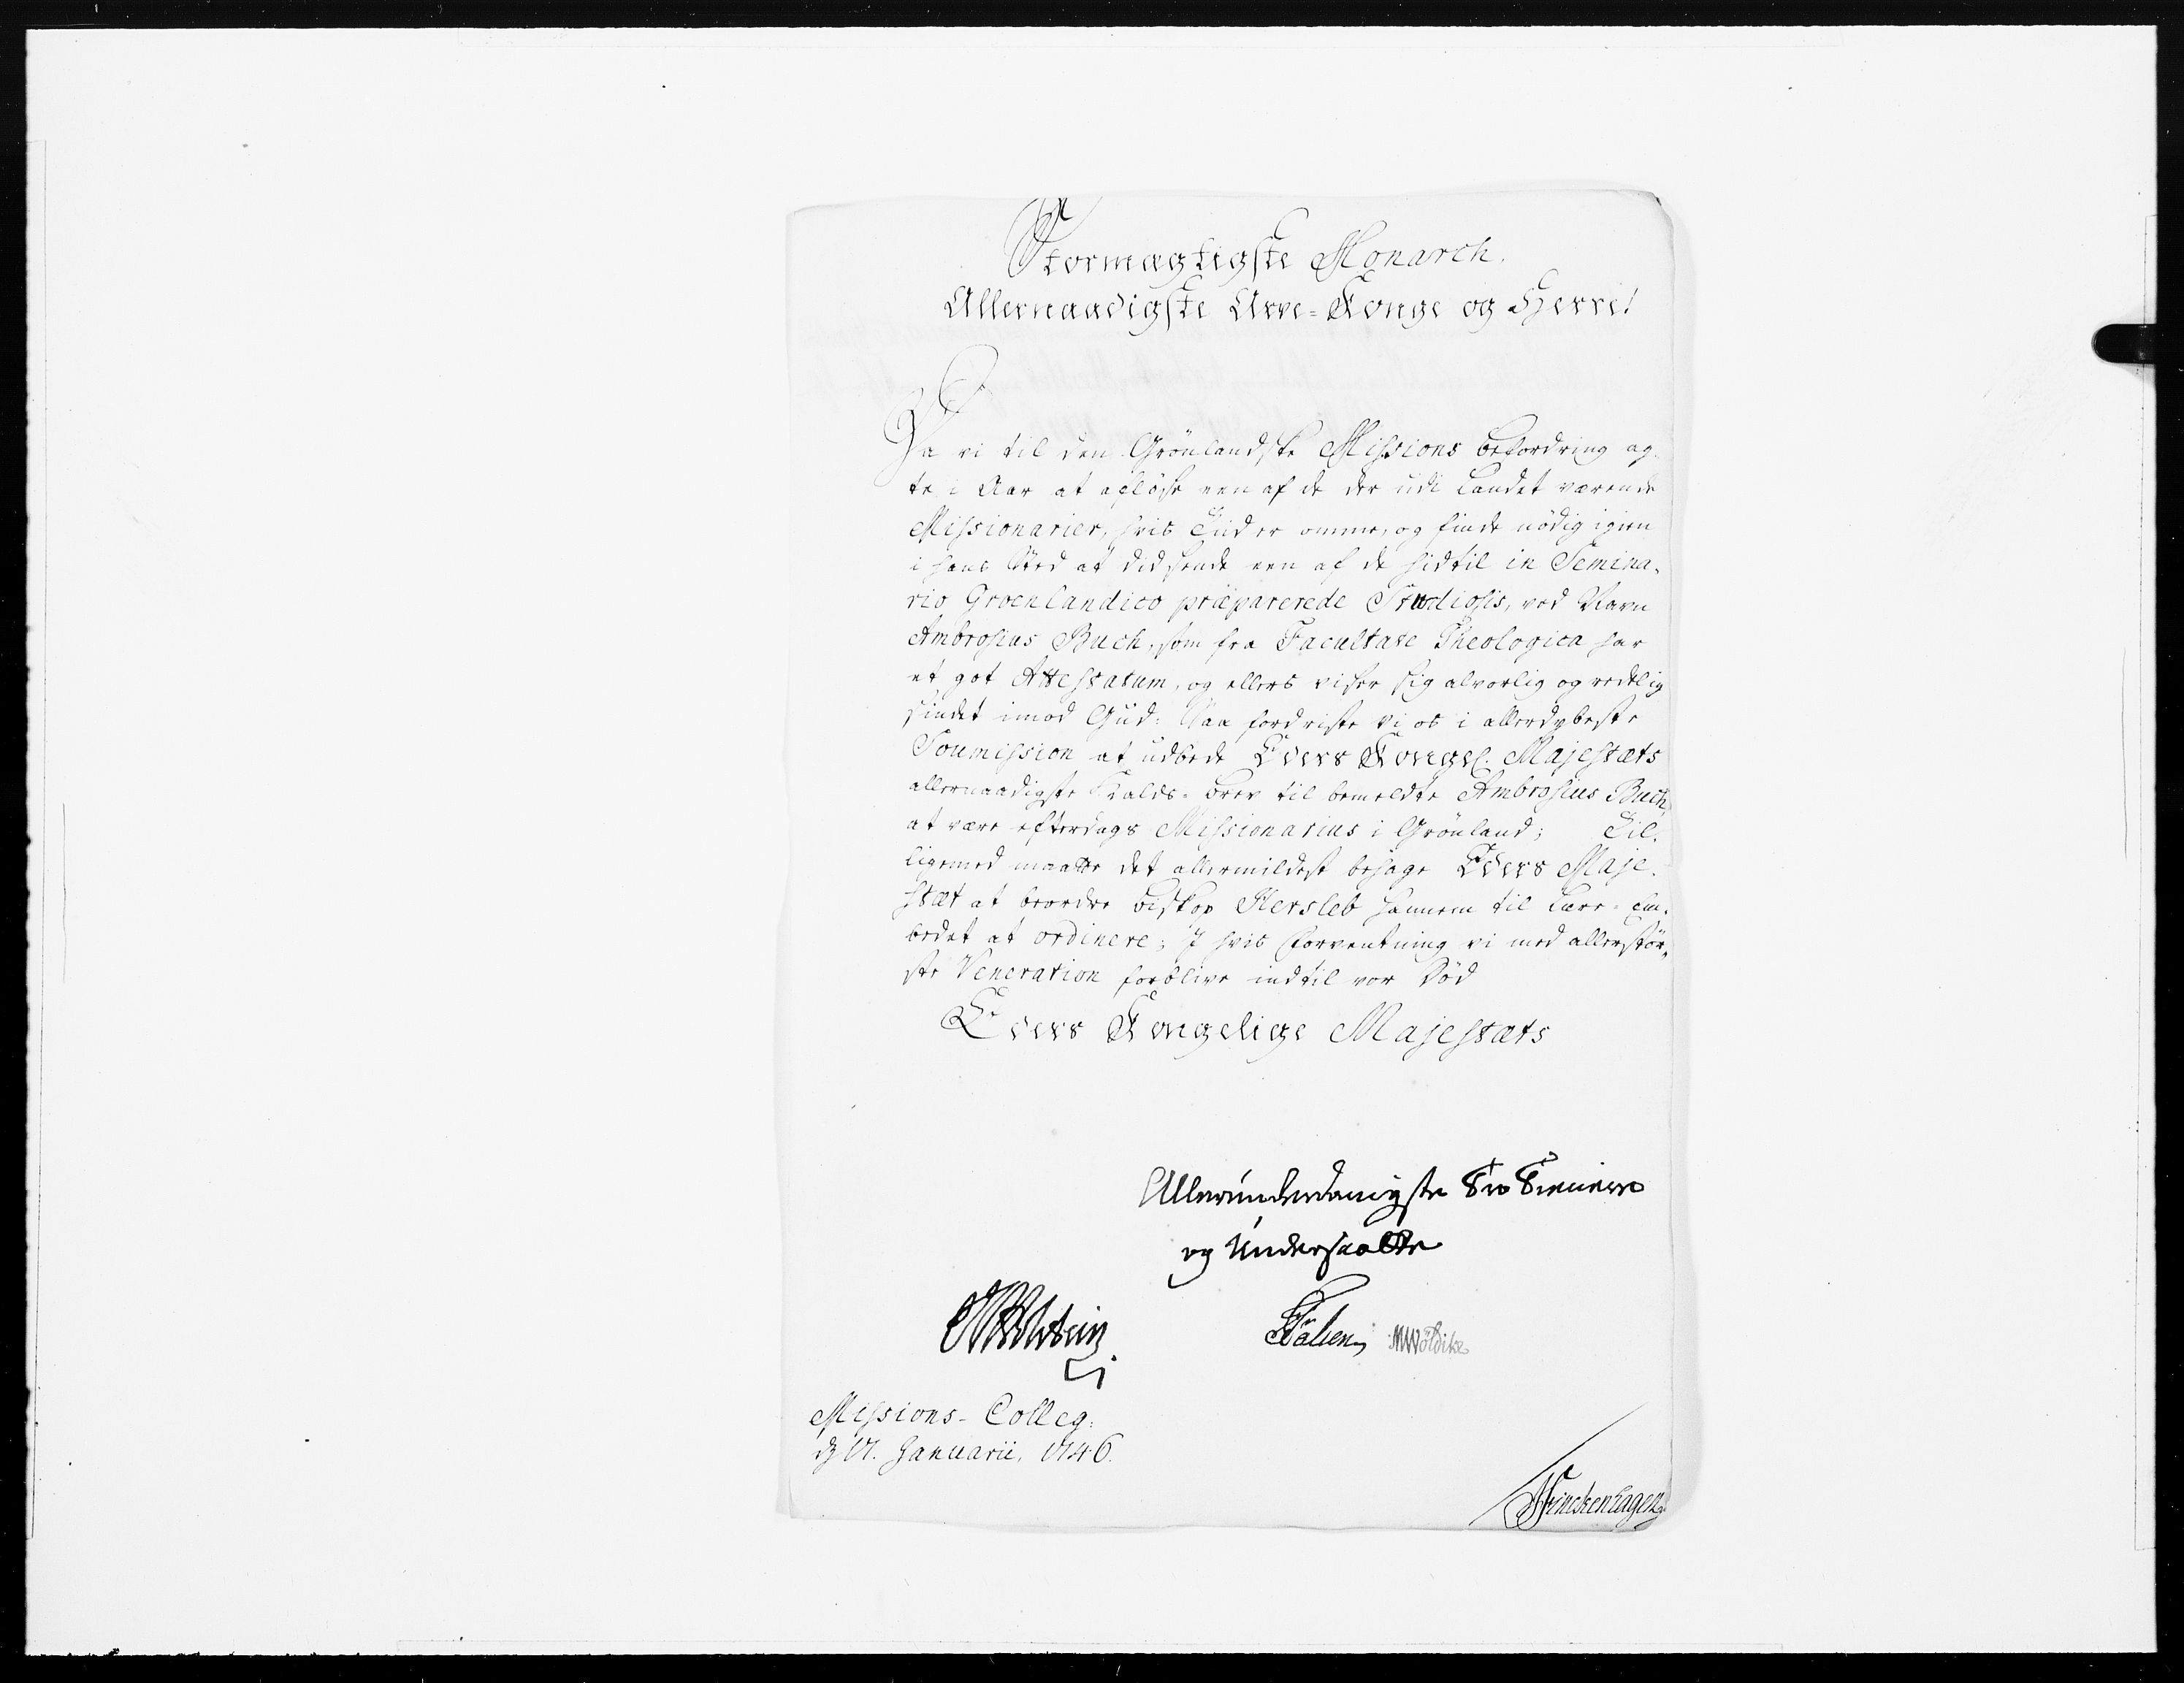 Stormægtigste Monarch.
Allernaadigste Arve-Konge og Herre!
Da vi til den Grönlandske Missions befordring ag-
te i Aar at aflöse een af de der udi Landet værende
Missionarier, hvis Tiid er omme, og finde nödig igien
i hans Sted at did sende een af de hidtil in Semina-
rio Groenlandico præparerede Studiosis, ved Navn
Ambrosius Buch, som fra Facultate Theologica har
et got Attestatum, og ellers viser sig alvorlig og redelig
sindet imod Gud: Saa fordriste vi os i allerdybeste
Soumission at udbede Eders Kongel. Majestæts
allernaadigste Kalds-brev til bemeldte Ambrosius Buch
at være efterdags Missionarius i Grönland; Til-
ligemed maatte det allermildest behage Eders Maje-
stæt at beordre Biskop Hersleb hannem til Lære-Em-
bedet at ordinere; I hvis forventning vi med allerstör-
ste Veneration forblive indtil vor Död
Eders Kongelige Majestæts
Allerunderdanigste Tro Tienere
og Undersaatter
JLHolstein
MWöldike
Missions-Colleg:
d 17. Januarii, 1746.
Finckenhagen